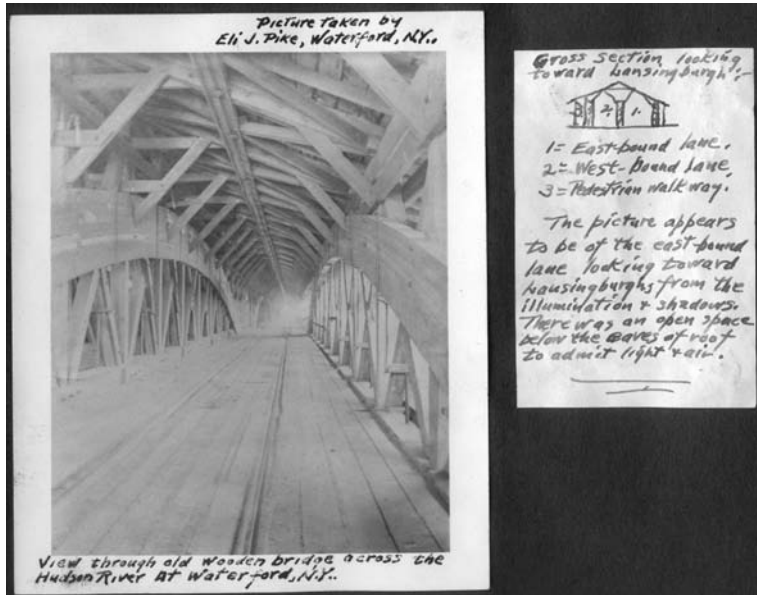 Picture taken by
Eli J. Pike, Waterford, N.Y..
View through old wooden bridge across the
Hudson River At Waterford, N.Y..
Cross section looking
toward Lansingburgh:-
3 2. 1.
1 = East-bound lane.
2 = West-bound Lane,
3 = Pedestrian walkway.
The picture appears
to be of the east-bound
lane looking toward
Lansingburghs from the
illumination & shadows.
There was an open space
below the eaves of roof
to admit light & air.